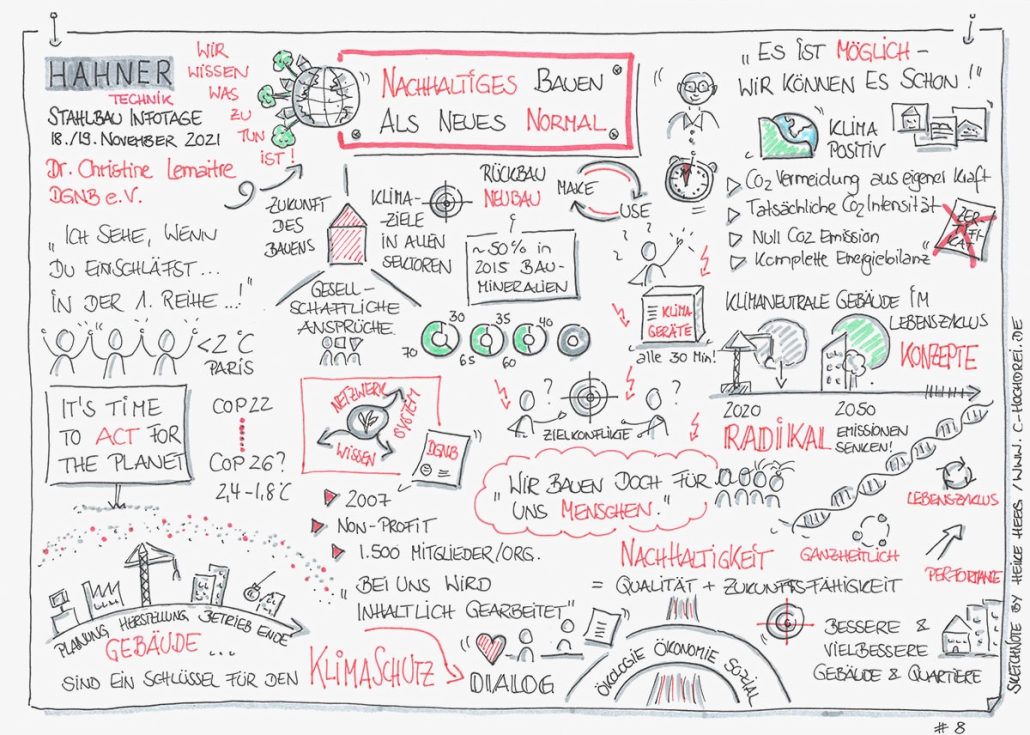 HAHNER
TECHNIK
STAHLBAU INFOTAGE
18./19. NOVEMBER 2021
Dr. Christine Lemaitre
DGNB e.V.
WIR
WISSEN
WAS
ZU
TUN
IST!
„NACHHALTIGES BAUEN
ALS NEUES NORMAL"
„ES IST MÖGLICH –
WIR KÖNNEN ES SCHON!"
KLIMA
POSITIV
CO2 Vermeidung aus eigener Kraft
Tatsächliche CO2 Intensität
Null CO2 Emission
Komplette Energiebilanz
ZER-
TIFI-
KAT
„ICH SEHE, WENN
DU EINSCHLÄFST...
IN DER 1. REIHE...!"
<2°C
PARIS
ZUKUNFT
DES
BAUENS
KLIMA-
ZIELE
IN ALLEN
SEKTOREN
GESELL-
SCHAFTLICHE
ANSPRÜCHE
RÜCKBAU
NEUBAU
~50% in
2015 BAU-
MINERALIEN
MAKE
USE
30
70
35
65
40
60
KLIMA-
GERÄTE
alle 30 Min!
KLIMANEUTRALE GEBÄUDE IM
LEBENSZYKLUS
KONZEPTE
2020
2050
RADIKAL
EMISSIONEN
SENKEN!
IT'S TIME
TO ACT FOR
THE PLANET
COP22
COP26?
2,4–1,8°C
NETZWERK
SYSTEM
WISSEN
DGNB
2007
NON-PROFIT
1.500 MITGLIEDER/ORG.
ZIELKONFLIKTE
„WIR BAUEN DOCH FÜR
UNS MENSCHEN."
LEBENSZYKLUS
GANZHEITLICH
PERFORMANCE
NACHHALTIGKEIT
= QUALITÄT + ZUKUNFTS-FÄHIGKEIT
„BEI UNS WIRD
INHALTLICH GEARBEITET"
PLANUNG, HERSTELLUNG, BETRIEB ENDE
GEBÄUDE...
SIND EIN SCHLÜSSEL FÜR DEN
KLIMASCHUTZ
DIALOG
ÖKOLOGIE ÖKONOMIE SOZIAL
BESSERE &
VIELBESSERE
GEBÄUDE & QUARTIERE
SKETCHNOTE BY HEIKE HERS / WWW.C-HOCHDREI.DE
#8